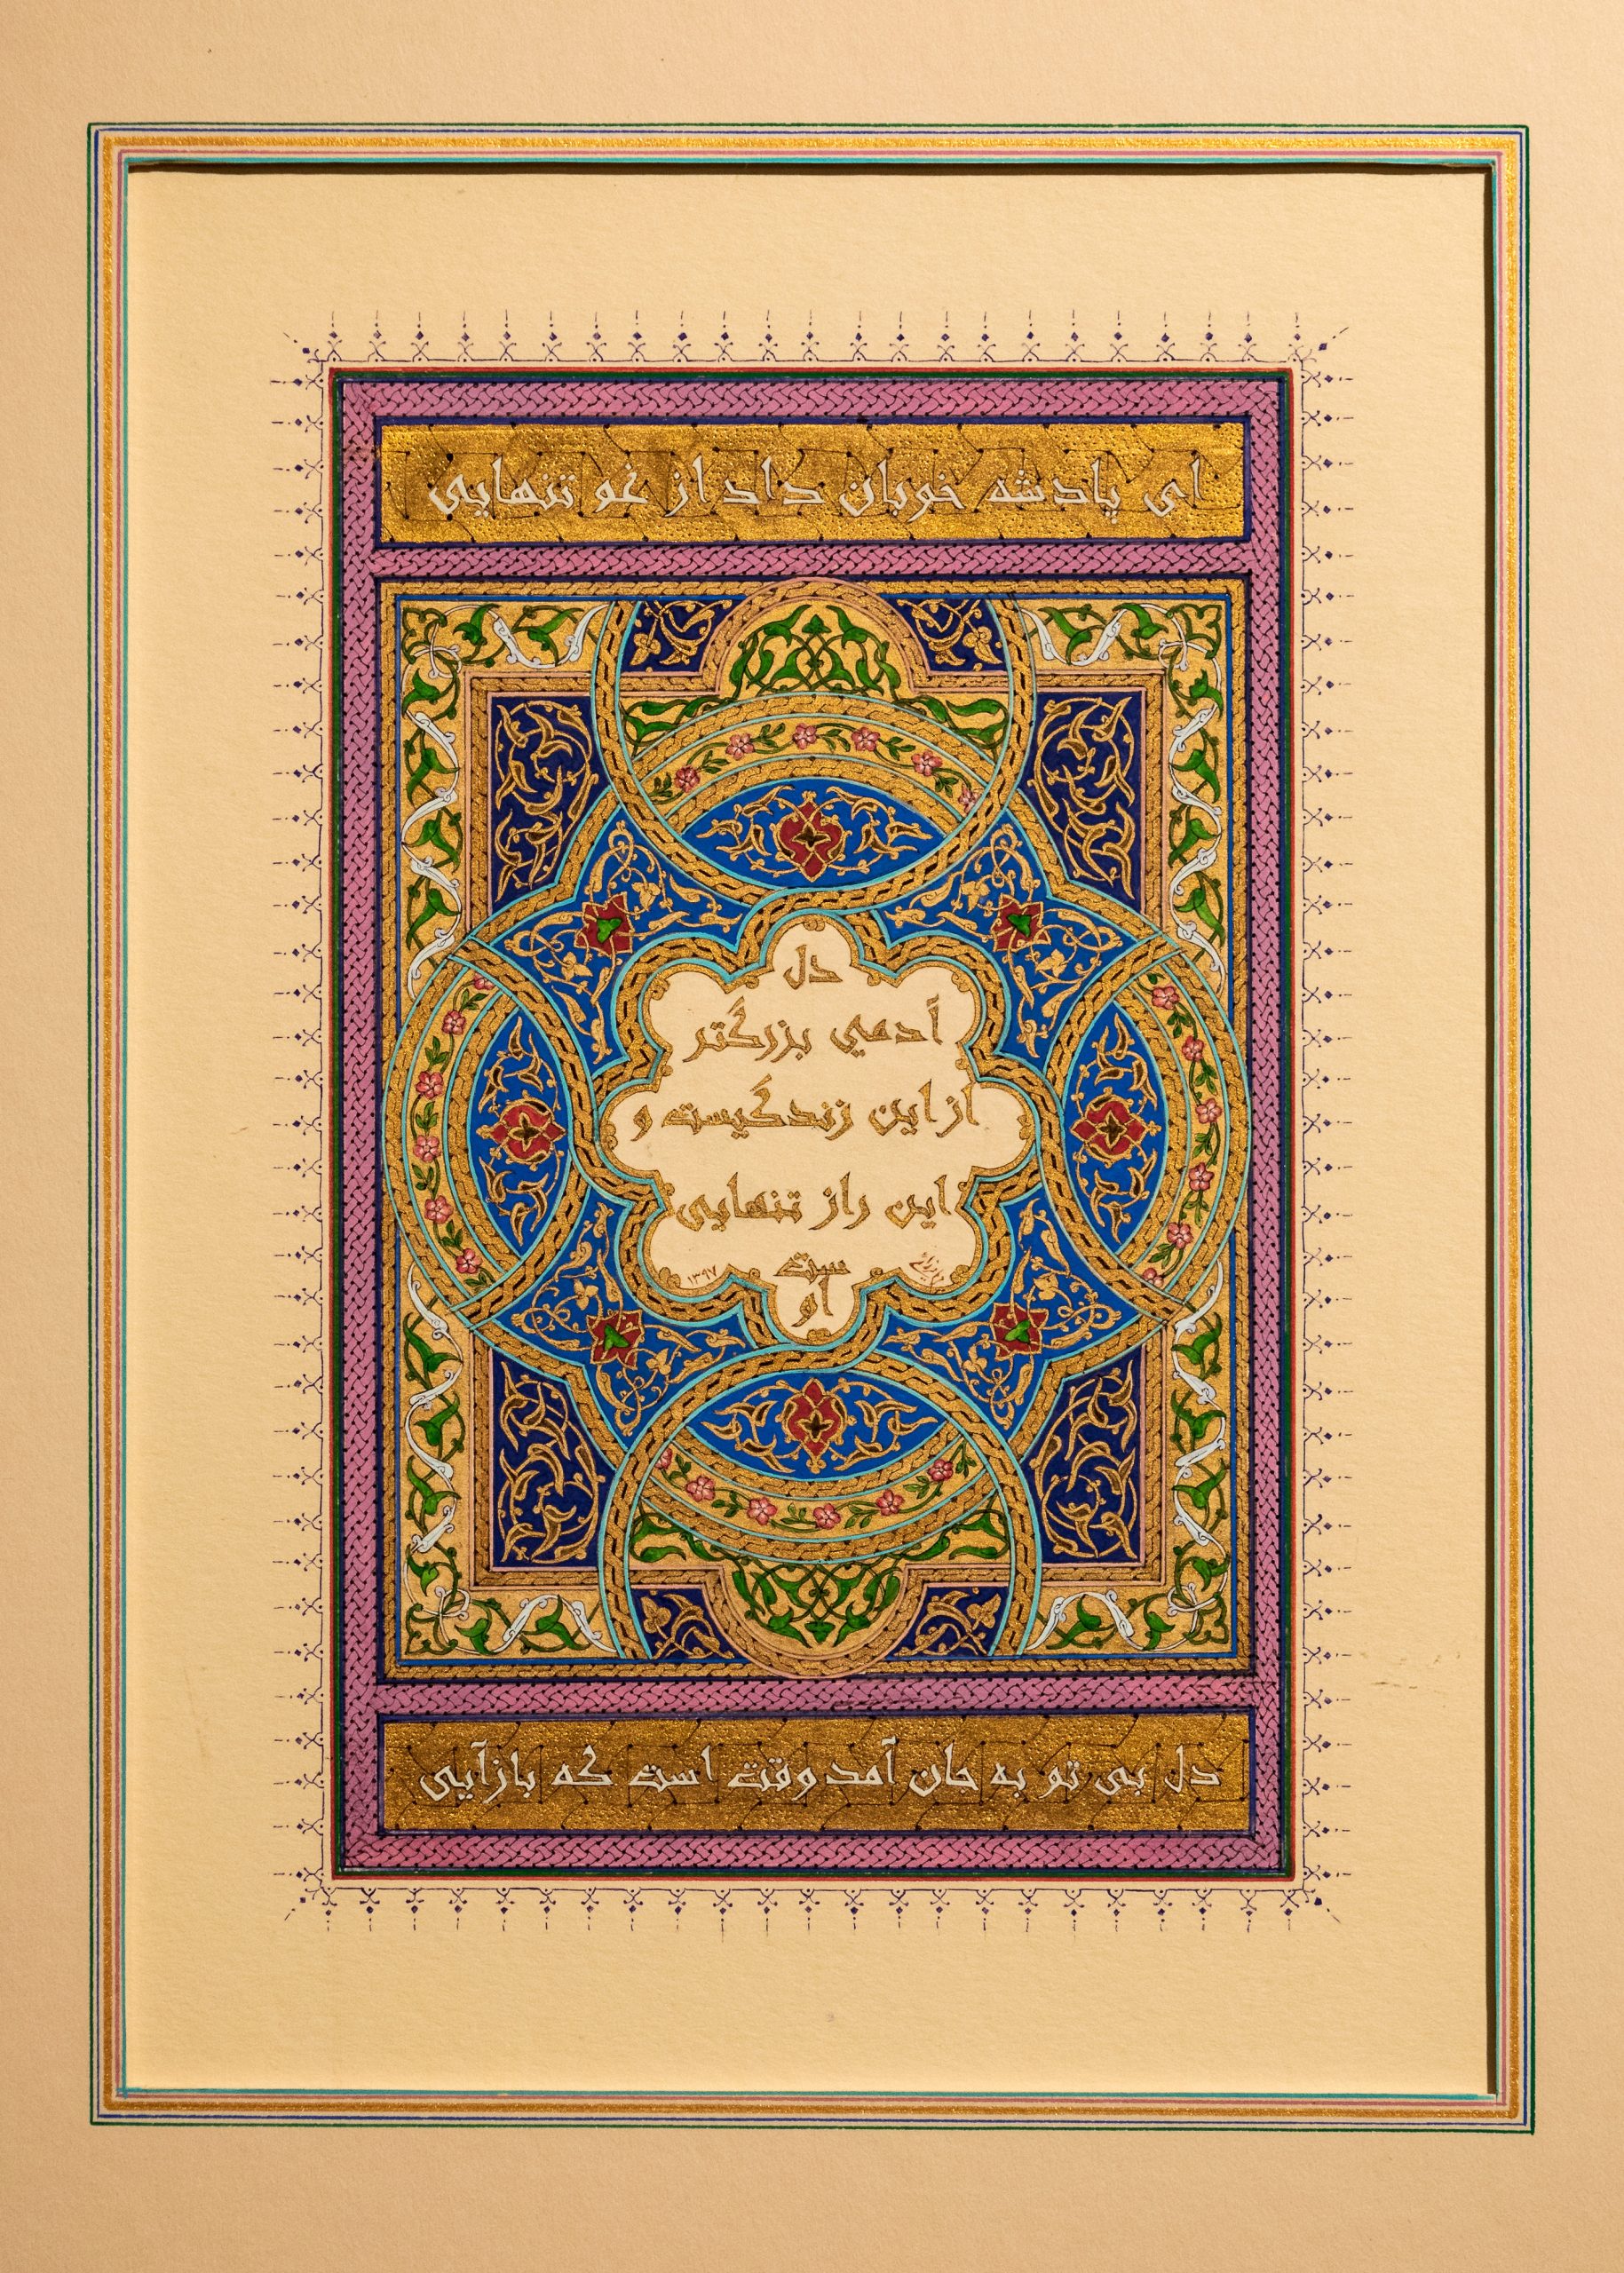 ای پادشه خوبان داد از غم تنهایی
دل
آدمی بزرگتر
از این زندگیست و
این راز تنهایی
ست
او
۱۳۹۷
دل بی تو به جان آمد وقت است که بازآیی